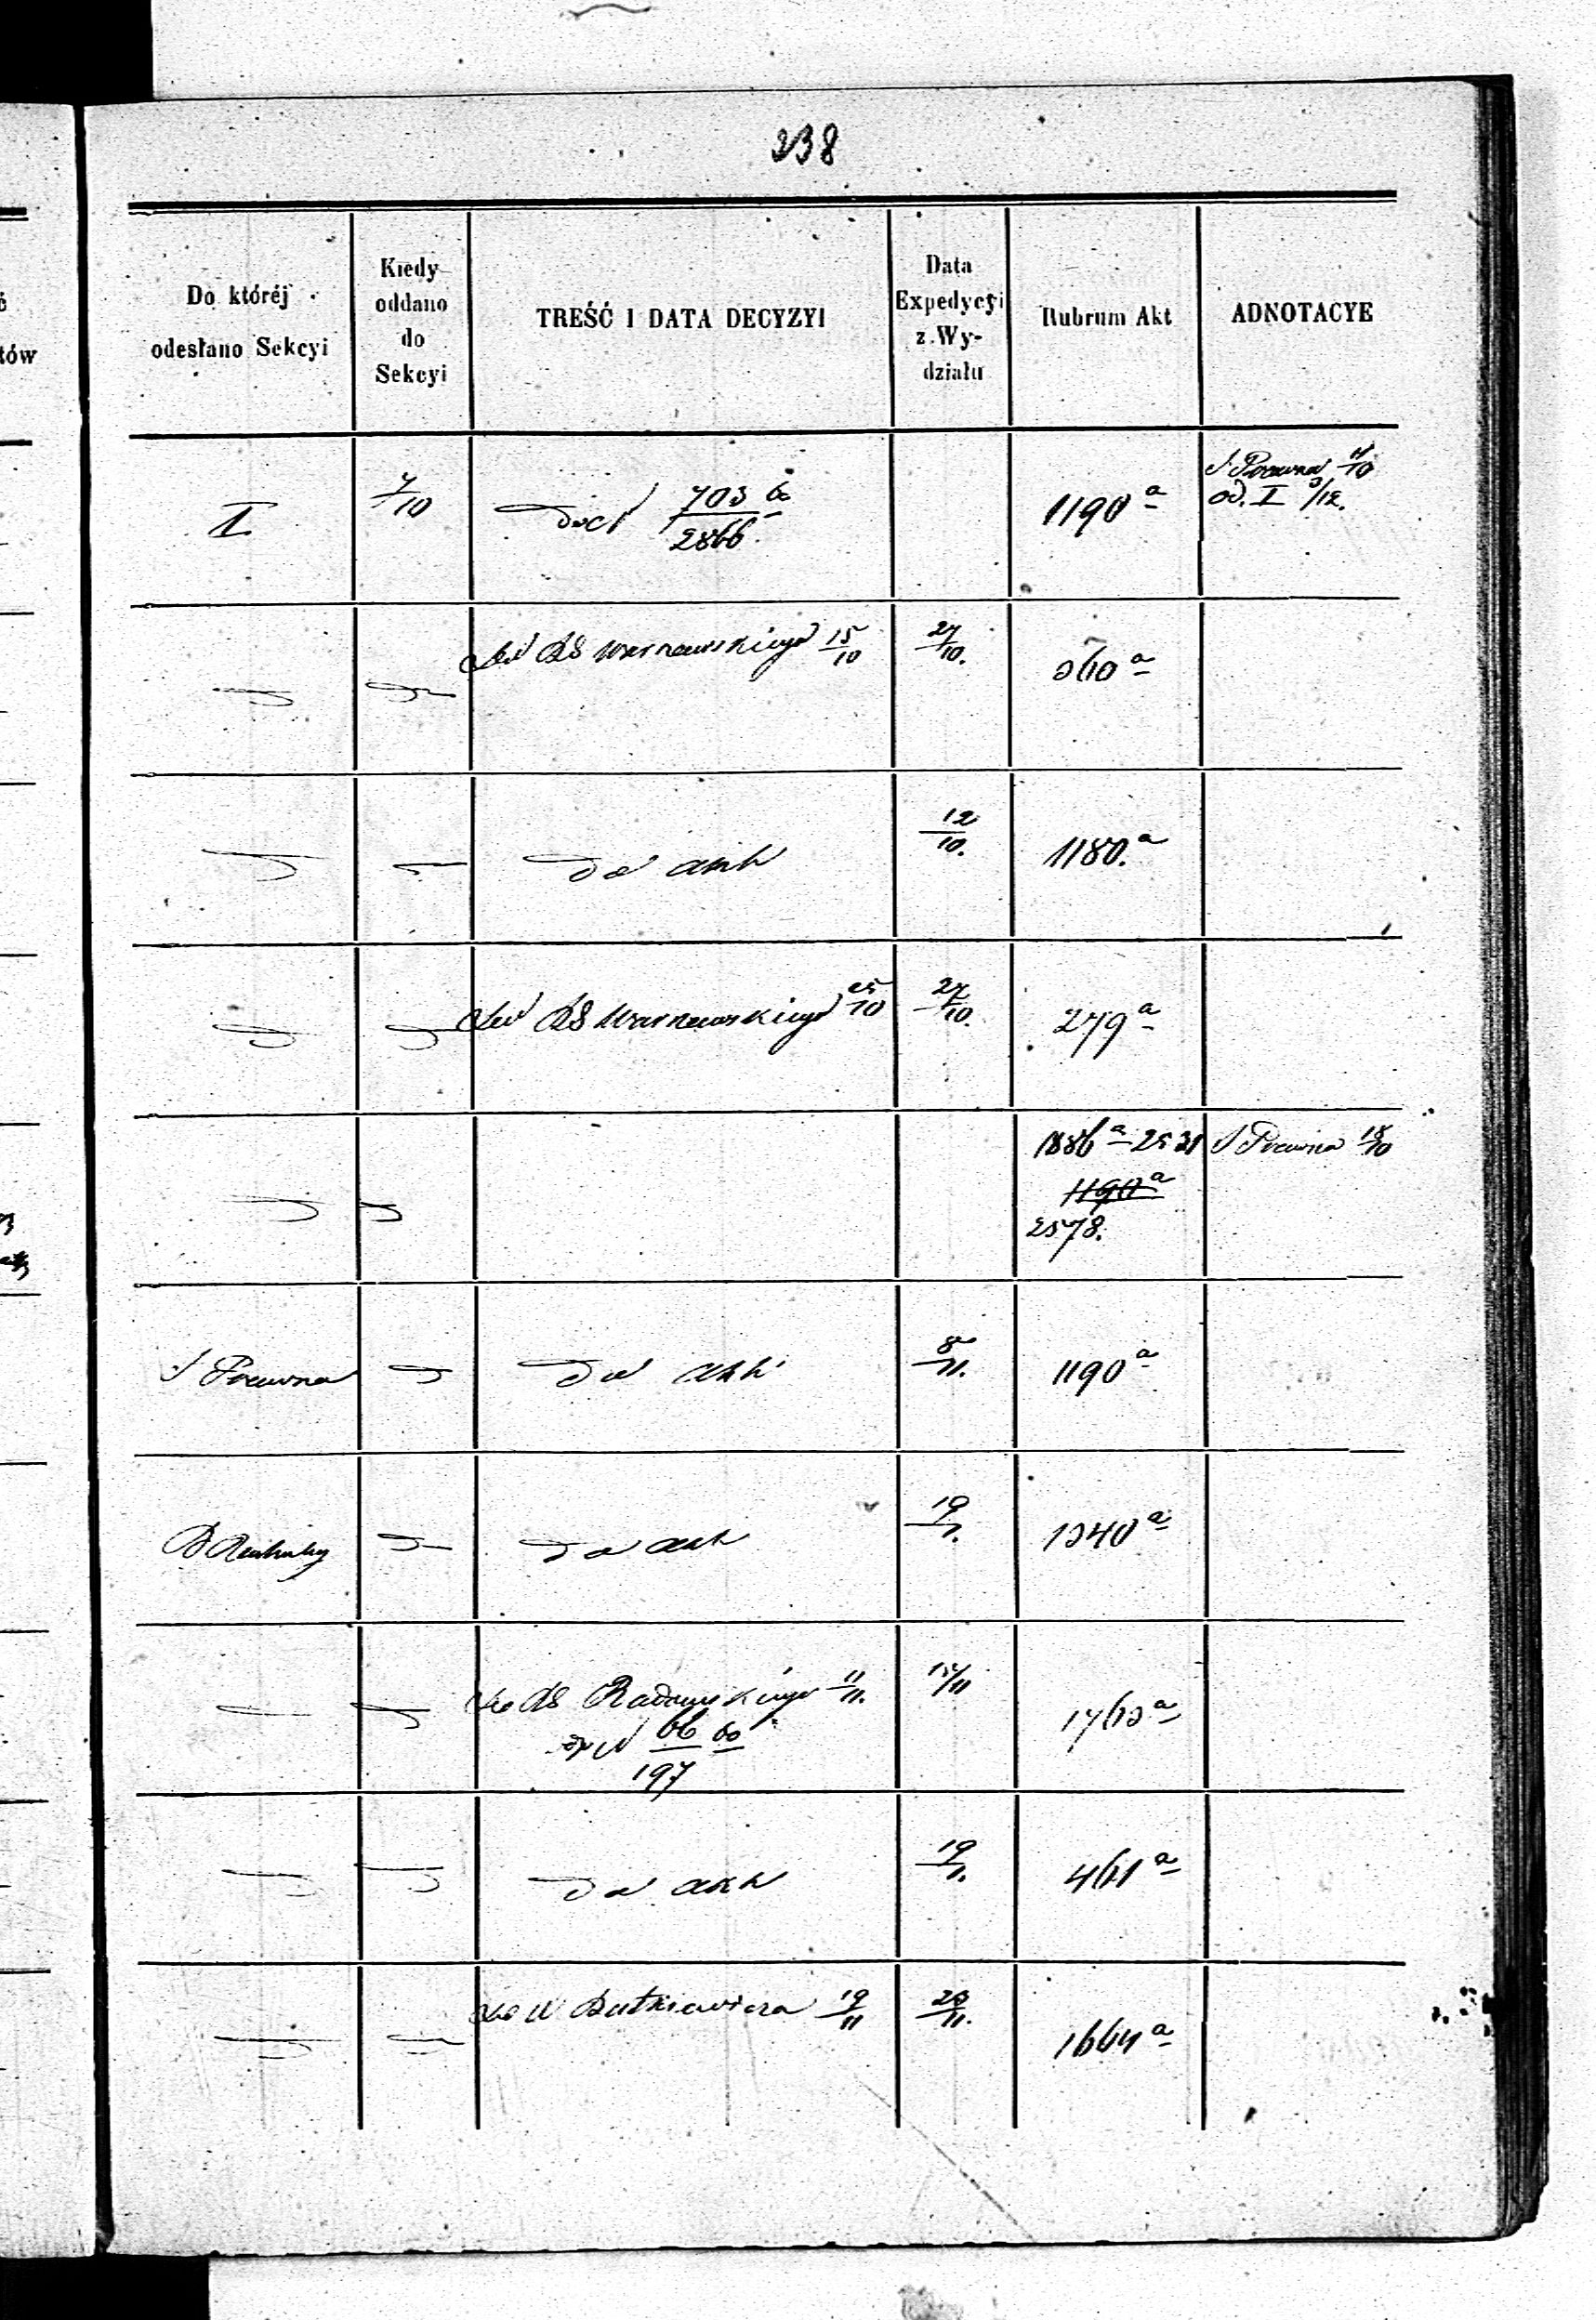 238
Do któréj odesłano Sekcyi
Kiedy oddano do Sekcyi
TREŚĆ I DATA DECYZYI
Data Expedycyi z Wydziału
Rubrum Akt
ADNOTACYE
I 7/10 703 60/2866 1190 a S Prawna 11/10
od. I 3/12.
RS Warszawskiego 15/10 27/10. 360 a
do akt 12/10. 1180. a
RS Warszawskiego 25/10 27/10. 279 a
1886 a 2521 S Prawna 18/10
1190 a
2578.
S Prawna do akt 8/11. 1190 a
do akt 19/11. 1340 a
RS Radomskiego 11/11. 15/11 1763 a
66 60/197
do akt 19/11. 461 a
Do W Butkiewicza 19/11 23/11. 1664 a